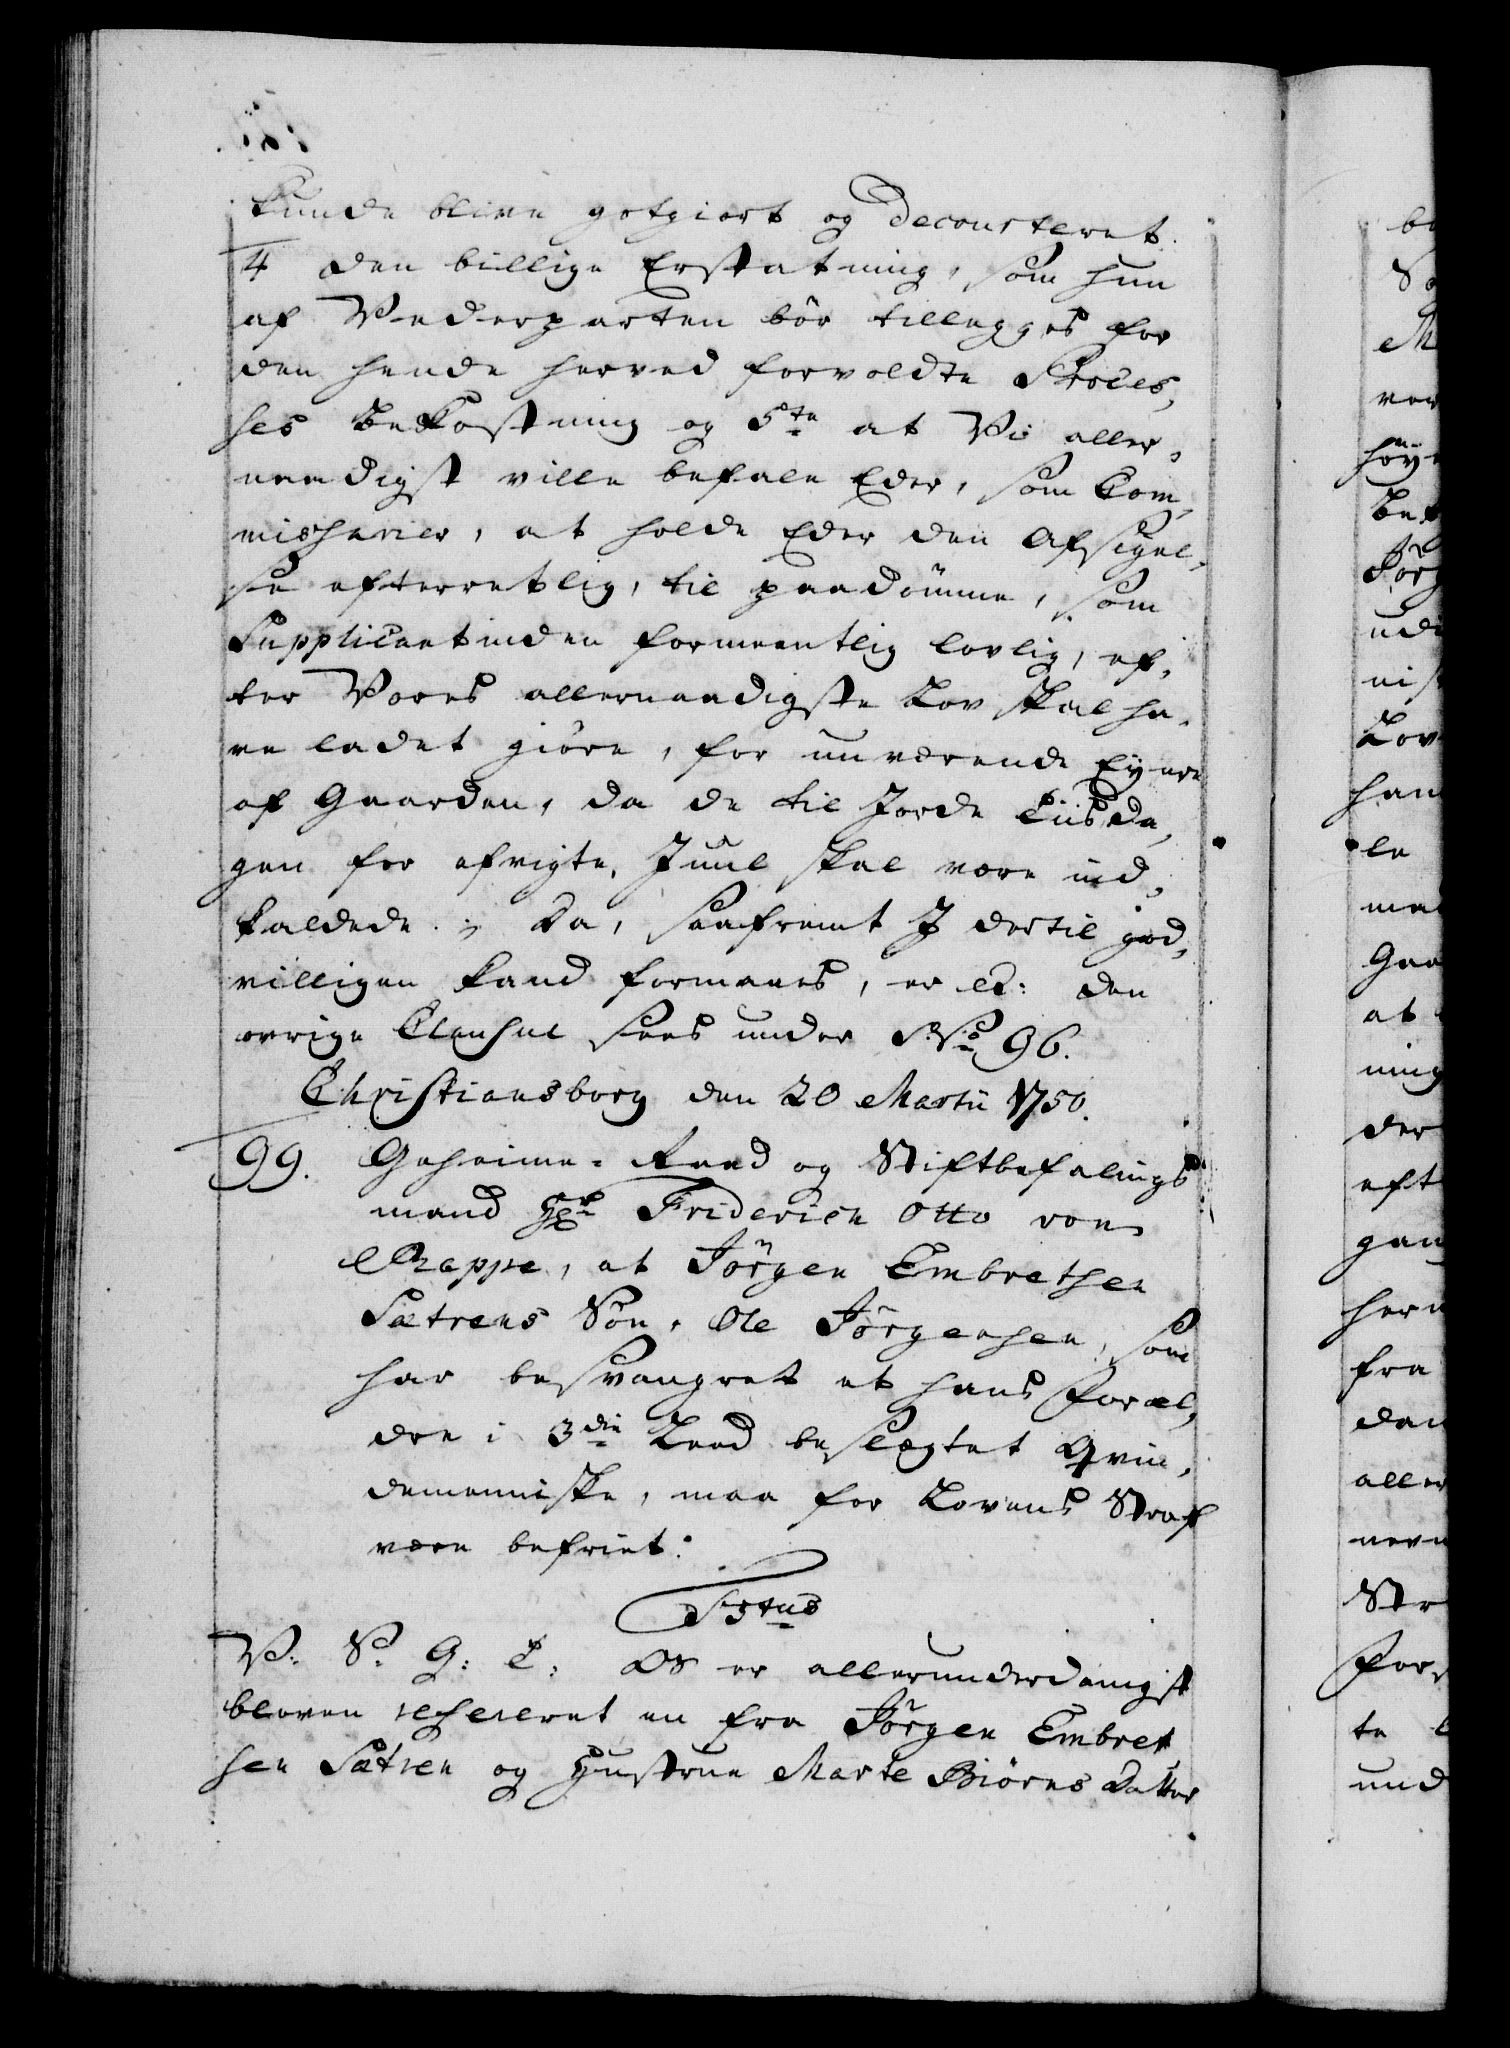 kunde blive gotgiort og decourteret.
4 den billige Erstatning, som hun
af Vederparten bör tillegges for
den hende herved forvoldte Proces,
ses Bekostning og 5te at Vi aller,
naadigst ville befale Eder, som Com,
missarier, at holde Eder den Afsigel,
se efterretlig, til paadömme, som
Supplicantinden formeentlig lovlig, ef,
ter Vores allernaadigste Lov skal ha,
ve ladet giöre, for nu værende Eyere
af Gaarden, da de til Jorde Tiisda,
gen for afvigte Juul skal være ind,
kaldede. Da, saafremt I dertil god,
villigen kand formaaes, er etc: den
övrige Clausul sees under No 96.
Christiansborg den 20 Martii 1750.
99. Geheime-Raad og Stiftbefalings
mand Hr Friderich Otto von
Rappe, at Jörgen Embretsen
Sætrens Sön, Ole Jörgensen, som
har besvangret et hans Foræl,
dre i 3die Leed beslægtet Qvin,
demenniske, maa for Lovens Straf
være befriet.
V: S: G: T: Os er allerunderdanigst
bleven refereret en fra Jörgen Embret
sen Sætren og Hustrue Marte Biörns Datter